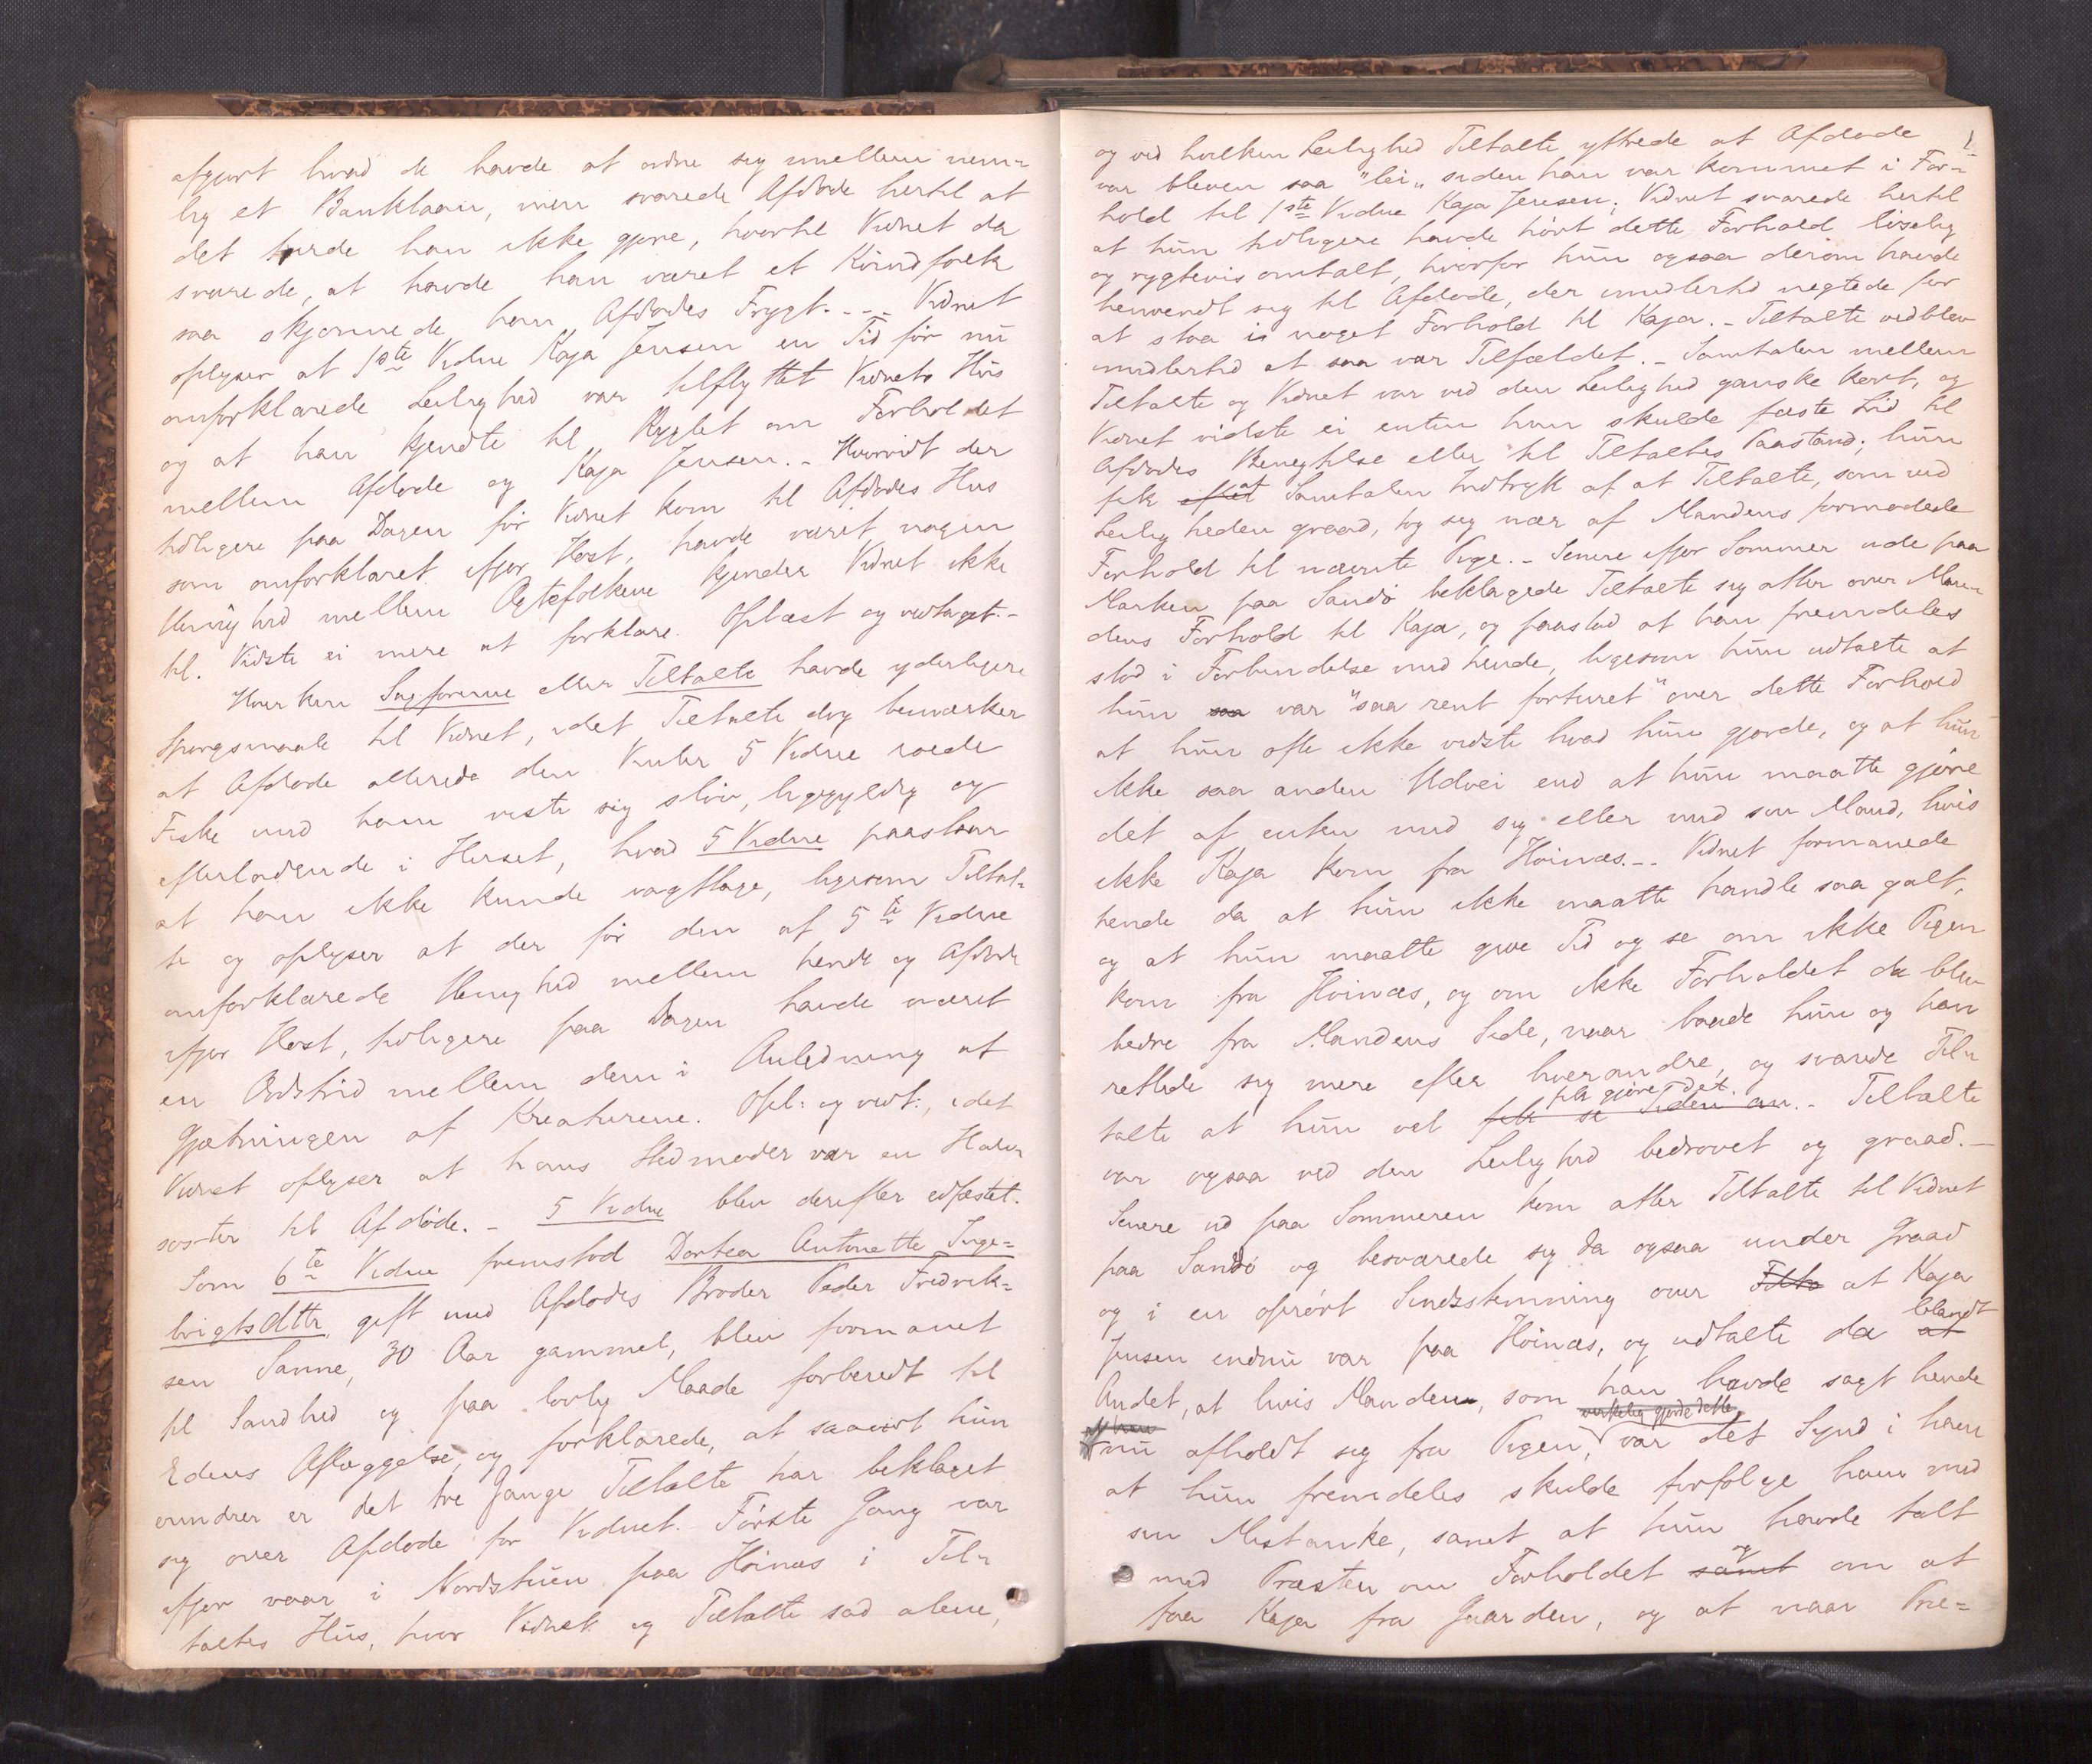 afgjort hvad de havde at ordne sig imellem nem-
lig et Banklaan, men svarede Afdøde hertil at
det turde han ikke gjøre, hvortil Vidnet da
svarede, at havde han været et Kvindfolk
saa skjønnede han Afdødes Frygt. - - - Vidnet
oplyser at 1ste Vidne Kaja Jensen en Tid før nu
omforklarede Leilighed var tilflyttet Vidnets Hus
og at han kjendte til Rygtet om Forholdet
mellem Afdøde og Kaja Jensen. - Hvorvidt der
tidligere paa Dagen før Vidnet kom til Afdødes Hus
som omforklaret ifjor Høst, havde været nogen
Uenighed mellem Ægtefolkene kjender Vidnet ikke
til. Vidste ei mere at forklare. Oplæst og vedtaget. -
Hverken Sagførerne eller Tiltalte havde yderligere
Spørgsmaale til Vidnet, idet Tiltalte dog bemærker
at Afdøde allerede den Vinter 5 Vidne roede
Fiske med ham viste sig sløv, ligegyldig og
efterladende i Huset, hvad 5 Vidne paastaar
at han ikke kunde iagttage, ligesom Tiltal-
te og oplyser at der før den af 5te Vidne
omforklarede Uenighed mellem hende og Afdøde
ifjor Høst, tidligere paa Dagen havde været
en Ordstrid mellem dem i Anledning af
Gjætningen af Kreaturene. Opl: og vedt:, idet
Vidnet oplyser at hans Stedmoder var en Halv-
søster til Afdøde. - 5 Vidne blev derefter edfæstet.
Som 6te Vidne fremstod Dortea Antonette Inge-
brigtsdttr, gift med Afdødes Broder Peder Fredrik-
sen Sanne, 30 Aar gammel, blev formanet
til Sandhed og paa lovlig Maade forberedt til
Edens Aflæggelse, og forklarede, at saavidt hun
erindrer er det tre Gange Tiltalte har beklaget
sig over Afdøde for Vidnet. Første Gang var
ifjor vaar i Nordstuen paa Høinæs i Til-
taltes Hus, hvor Vidnet og Tiltalte sad alene,
og ved hvilken Leilighed Tiltalte yttrede at Afdøde
var bleven saa "lei" siden han var kommet i For-
hold til 1ste Vidne Kaja Jensen; Vidnet svarede hertil
at hun tidligere havde hørt dette Forhold løselig
og rygtevis omtalt, hvorfor hun ogsaa derom havde
henvendt sig til Afdøde, der imidlertid negtede for
at staa i noget Forhold til Kaja. - Tiltalte vedblev
imidlertid at saa var Tilfældet. - Samtalen mellem
Tiltalte og Vidnet var ved den Leilighed ganske kort, og
Vidnet vidste ei enten hun skulde fæste Lid til
Afdødes Benegtelse eller til Tiltaltes Paastand; hun
fik af Samtalen Indtryk af at Tiltalte, som ved
Leiligheden graad, tog sig nær af Mandens formodede
Forhold til nævnte Pige. - Senere ifjor Sommer ude paa
Marken paa Sandø beklagede Tiltalte sig atter over Man-
dens Forhold til Kaja, og paastod at han fremdeles
stod i Forbindelse med hende, ligesom hun udtalte at
hun saa var "saa rent forturet" over dette Forhold
at hun ofte ikke vidste hvad hun gjorde, og at hun
ikke saa anden Udvei end at hun maatte gjøre
det af enten med sig eller med son Mand, hvis
ikke Kaja kom fra Høinæs. - - Vidnet formanede
hende da at hun ikke maatte handle saa galt,
og at hun maatte give Tid og se om ikke Pigen
kom fra Høinæs, og om ikke Forholdet da blev
bedre fra Mandens Side, naar baade hun og han
rettede sig mere efter hverandre, og svarede Til-
talte at hun vel fik se Tiden an fik gjøre det. - Tiltalte
var ogsaa ved den Leilighed bedrøvet og graad. -
Senere ud paa Sommeren kom atter Tiltalte til Vidnet
paa Sandø og besværede sig da ogsaa under Graad
og i en oprørt Sindsstemning over at Kaja
Jensen endnu var paa Høinæs, og udtalte da at blandt
Andet, at hvis Manden, som han havde sagt hende
nu afholdt sig fra Pigen, virkelig gjorde dette, var det Synd i ham
at hun fremdeles skulde forfølge ham med
sin Mistanke, samt at hun havde talt
med Præsten om Forholdet samt og om at
faa Kaja fra Gaarden, og at naar Præ-